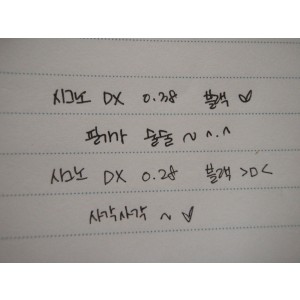 시그노 DX 0.38 블랙 ♡
필기가 술술 ~ ^.^
시그노 DX 0.28 블랙 >D<
사각사각 ~ ♡